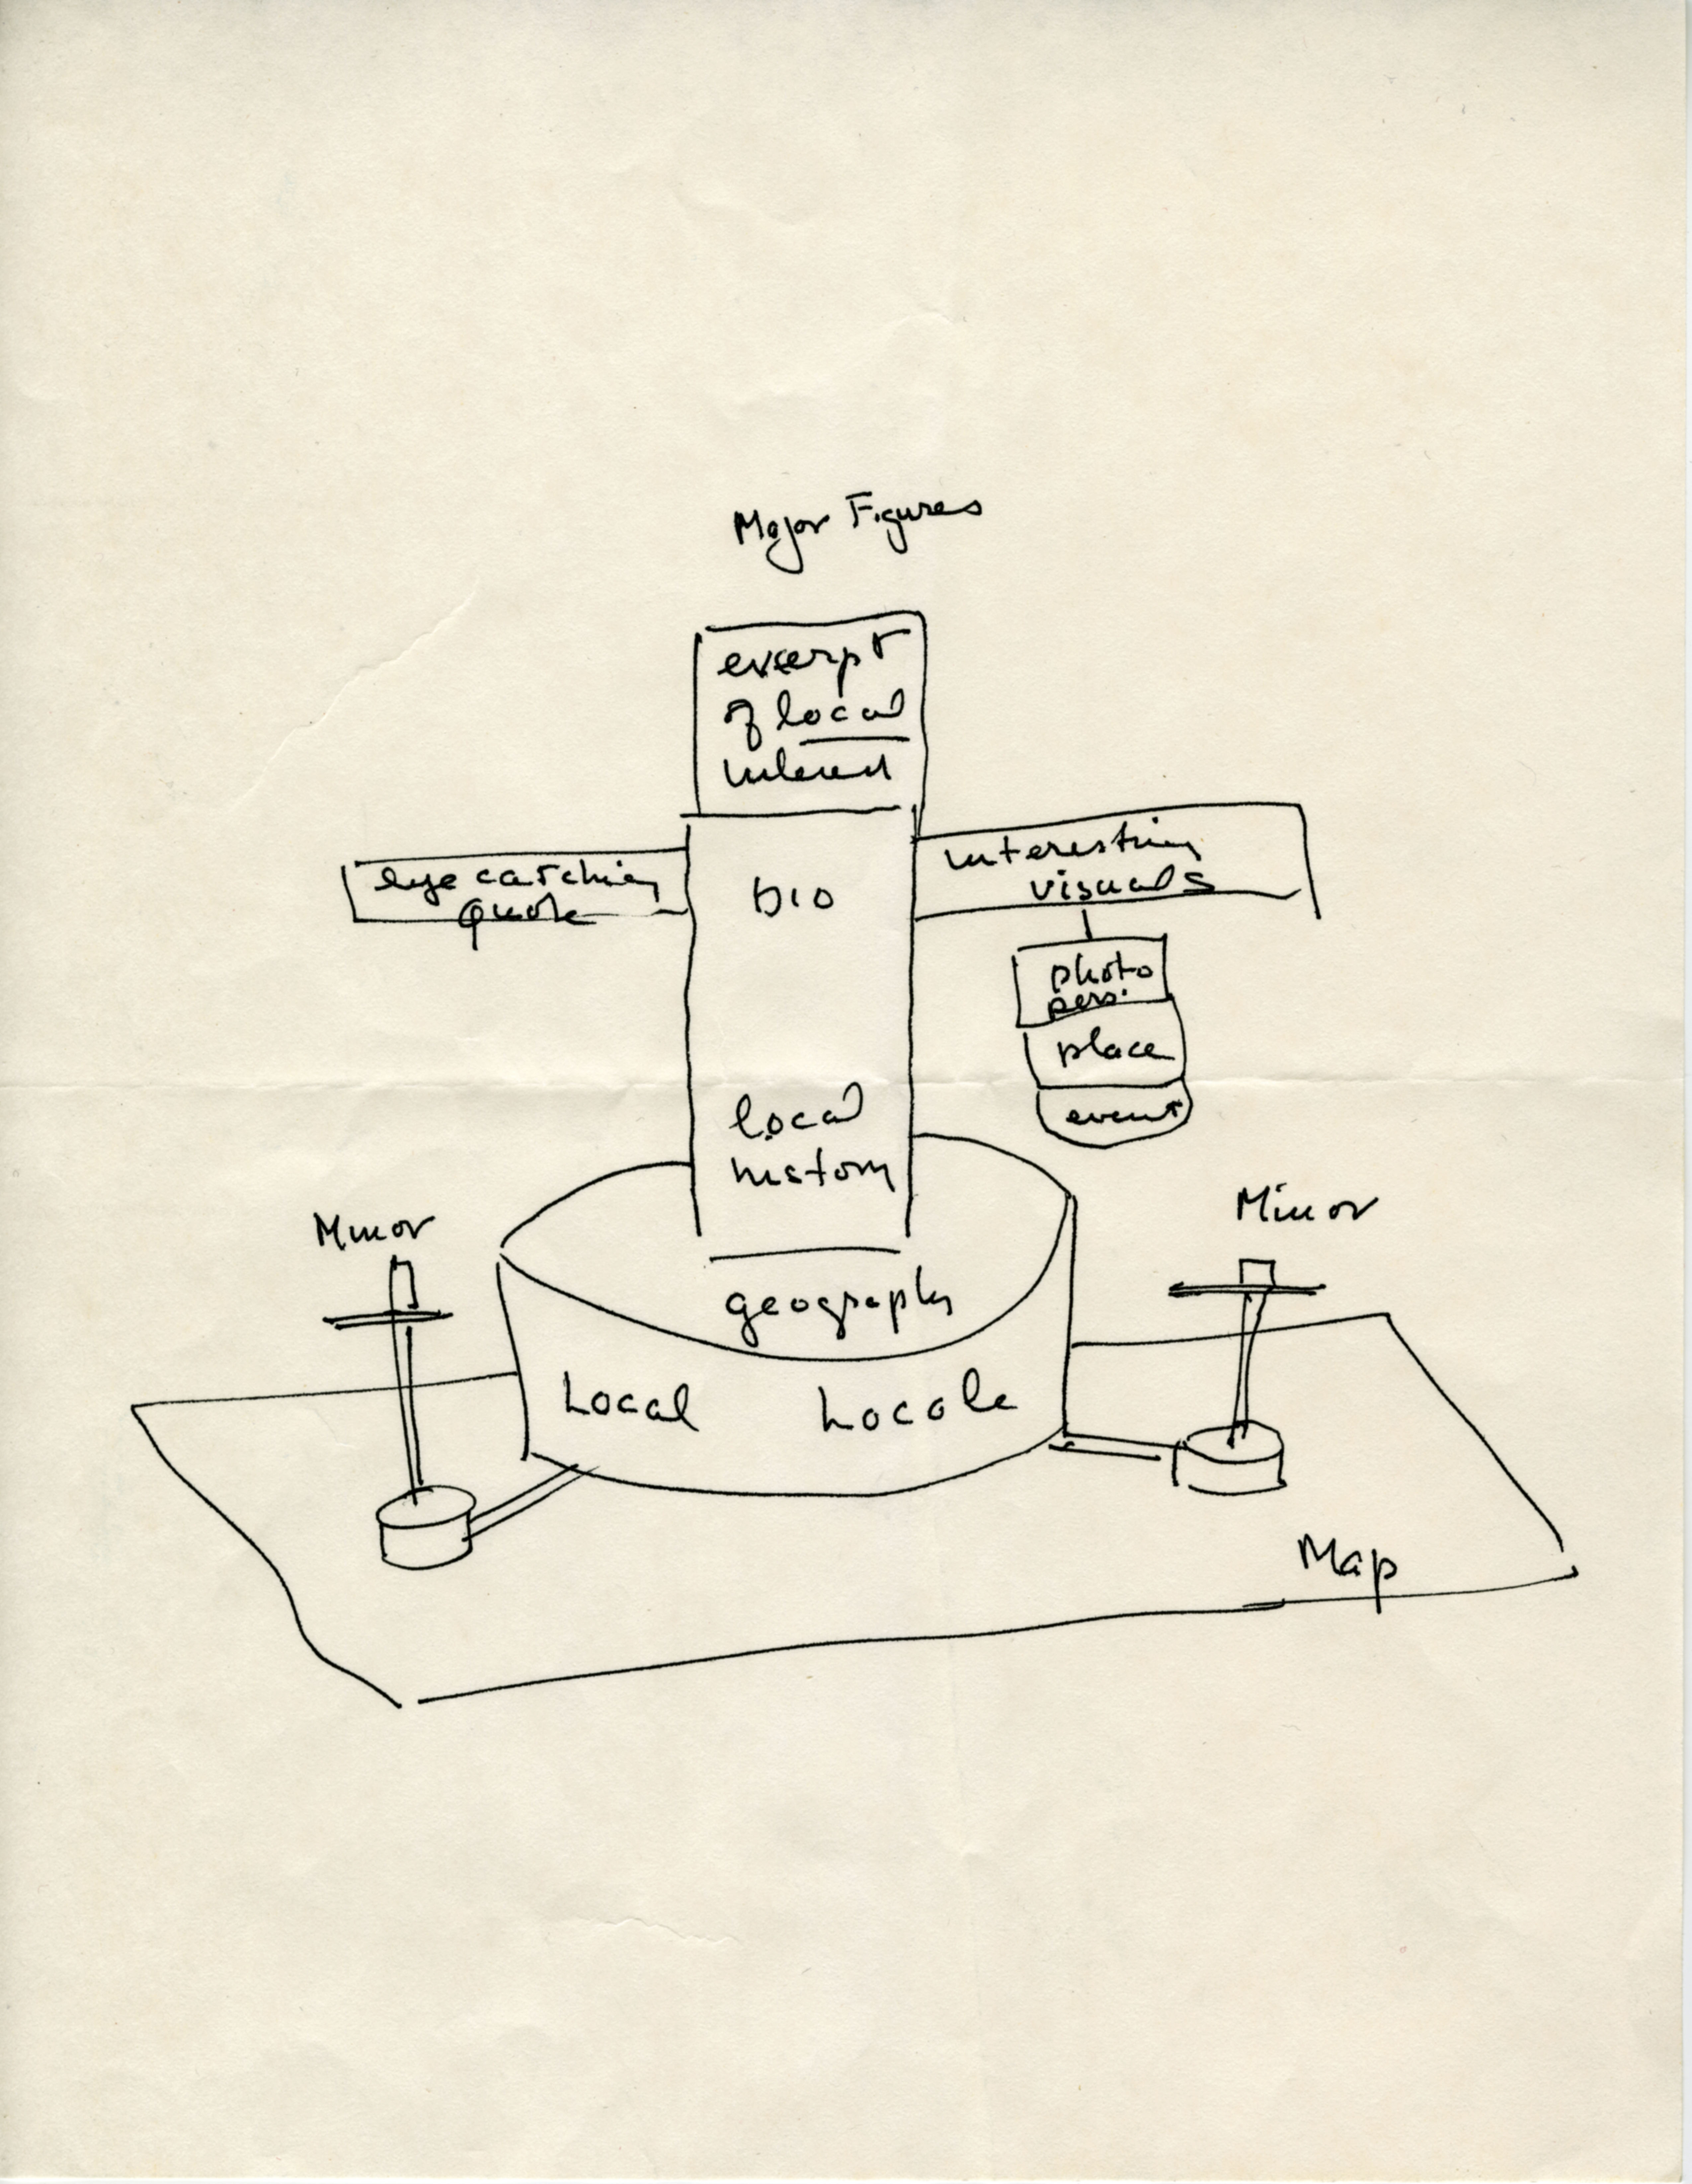 Major Figures
exserpt
of local
interest
eye catching
quote
bio
interesting
visuals
photo
pers.
place
event
local
history
Minor
Minor
geography
Local Locale
Map